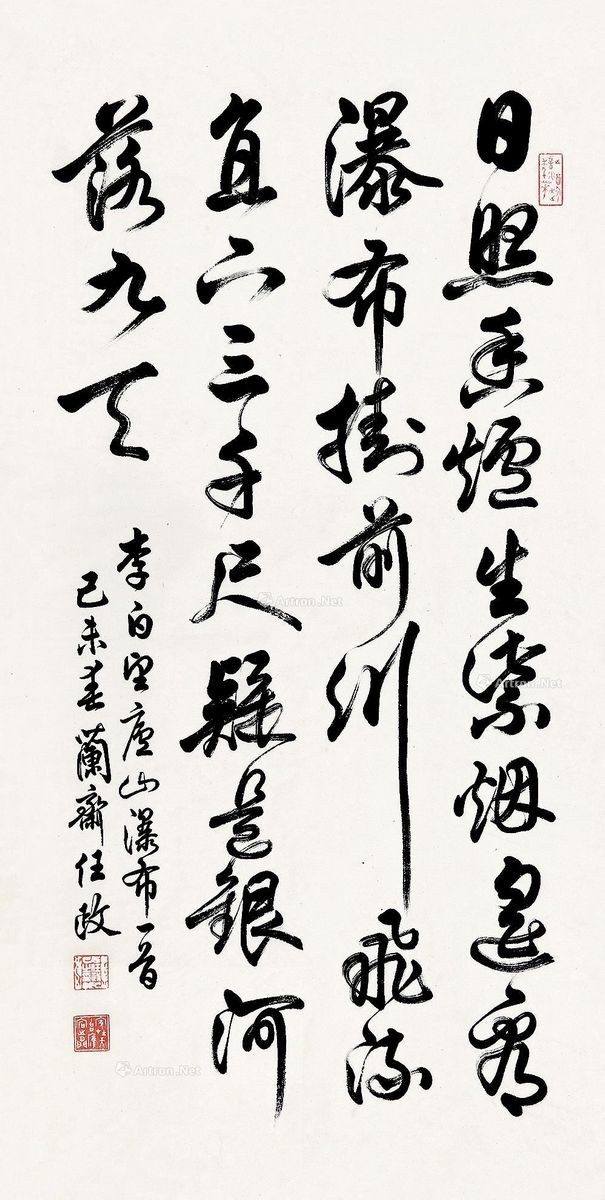 日照香爐生紫烟遥看
瀑布掛前川飛流
直下三千尺疑是銀河
落九天
李白望廬山瀑布一首
己未春蘭齋任政
Artron.Net
Artron.Net
Artron.Net